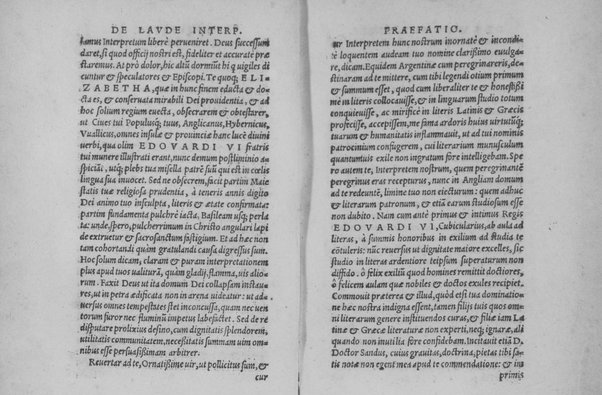 DE LAVDE INTERP.
lamus Interpretum liberè perueniret. Deus successum
daret, si quod officij nostri est, fideliter et accuratè præ
staremus. At prò dolor, hic altũ dormiũt hi q̃ uigiles di
cuntur & speculatores & Episcopi. Te quoq; ELI
ZABETHA, quæ in hunc finem educta & do-
cta es, & conseruata mirabili Dei prouidentia, & ad
hoc solium regium euecta, obsecrarem & obtestarer,
ut Ciues tui Populusq́; tuus, Anglicanus, Hybernicus,
Vuallicus, omnes insulæ & prouinciæ hanc lucẽ diuini
uerbi, qua olim EDOVARDI VI fratris
tui munere illustrati erant, nunc demum postliminio a-
spiciãt, utq́; plebs tua misella patrẽ suũ qui est in cœlis
lingua sua inuocet. Sed ne obsecrem, facit partim Maie
statis tuæ religiosa prudentia, à teneris annis digito
Dei animo tuo insculpta, literis & ætate confirmata:
partim fundamenta pulchrè iacta. Basileam usq; perla
ta: unde, spero, pulcherrimum in Christo angulari lapi
de extruetur & sacrosanctum fastigium. Et ad hæc non
tam cohortandi quàm gratulandi causa digressus sum.
Hoc solum dicam, claram & puram interpretationem
plus apud tuos ualiturã, quàm gladij, flamma, uis alio-
rum. Faxit Deus ut ita domum Dei collapsam instau-
res, ut in petra ædificata non in arena uideatur: ut ad-
uersus omnes tempestates stet inconcussa, quam nec uen
torum furor nec fluminũ impetus labefactet. Sed de re
disputare prolixius desino, cum dignitatis splendorem,
utilitatis communitatem, necessitatis summam uim om-
nibus esse persuasissimam arbitrer.
Reuertar ad te, Ornatissime uir, ut pollicitus sum, &
cur
PRAEFATIO.
cur Interpretem hunc nostrum inornatè & incondi-
tè loquentem audeam tuo nomine clarissimo euulga-
re, dicam. Equidem Argentinæ cum peregrinareris, de-
stinaram ad te mittere, cum tibi legendi otium primum
& summum esset, quod cum liberaliter te & honestissi
mè in literis collocauisse, & in linguarum studio totum
conquieuisse, ac mirificè in literis Latinis & Græcis
profecisse, accepissem, me sic ardor huius uirtutisq́;
tuarum & humanitatis inflammauit, ut ad tui nominis
patrocinium confugerem, cui literarum munusculum
quantumuis exile non ingratum fore intelligebam. Spe
ro autem te, Interpretem nostrum, quem peregrinantẽ
peregrinus eras recepturus, nunc in Angliam domum
ad te redeuntẽ, limine tuo non eiecturum: quem adhuc
& literarum patronum, & etiã earum studiosum esse
non dubito. Nam cum antè primus & intimus Regis
EDOVARDI VI, Cubicularius, ab aula ad
literas, à summis honoribus in exilium ad studia te
cõtuleris: nũc reuersus ut dignitate maiore excelles, sic
studio in literas ardentiore teipsum superaturum non
diffido. ô felix exiliũ quod homines remittit doctiores,
ô felicem aulam quæ nobiles & doctos exules recipiet.
Commouit præterea & illud, quòd etsi tua dominatio-
ne hæc nostra indigna essent, tamen filijs tuis quos om-
ni literarum genere instituendos curas, & filiæ iam La
tinæ & Græcæ literaturæ non experti, neq; ignaræ, ali
quando non inutilia fore confidebam. Incitauit etiã D,
Doctor Sandus, cuius grauitas, doctrina, pietas tibi sa-
tis nota non eget mea apud te commendatione. Hic im-
primis